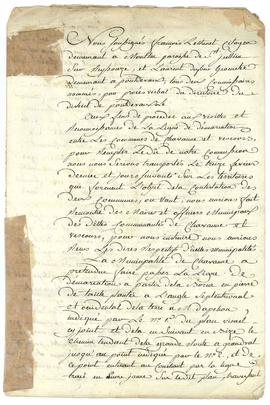 Nous soussignés François citoyen
demeurant à Moulta paroisse de St julien
sur Reyssouze, et Laurent Geometre
demeurant à pontdevaux, tous deux Commissaires
nommés par procès verbal du directoire du
district de pontdevaux
aux fins de proceder aux visites et
Reconnoissances de la Ligne de démarcation
entre les Communes de chavanne et vescours,
pour Remplir le Dû de notre Commission
nous nous serions transportés Le février
dernier et jours suivants sur les territoires
qui forment l'objet de la Contestation des
deux Communes, ou étant, nous aurions fait
des Maires et officiers Municipaux
des dittes Communautés de Chavanne et
vescours, pour nous instruire nous aurions
Les dires Respectifs d'icelles municipalités
La Municipalité de Chavanne a
pretendue faire passer La Ligne de
démarcation a partir de la Borne en pierre
de taille plantée à L'angle septentrional
et occidental de la terre à M. daphon
indiqué par Le N° 1 du plan visuel
cy joint et de là en suivant en Bize le
chemin tendant de la grande route a
jusqu'au point indiqué par le N° 2, et de
ce point entrant au Couchant par la ligne
en jaune sur ledit plan traversant